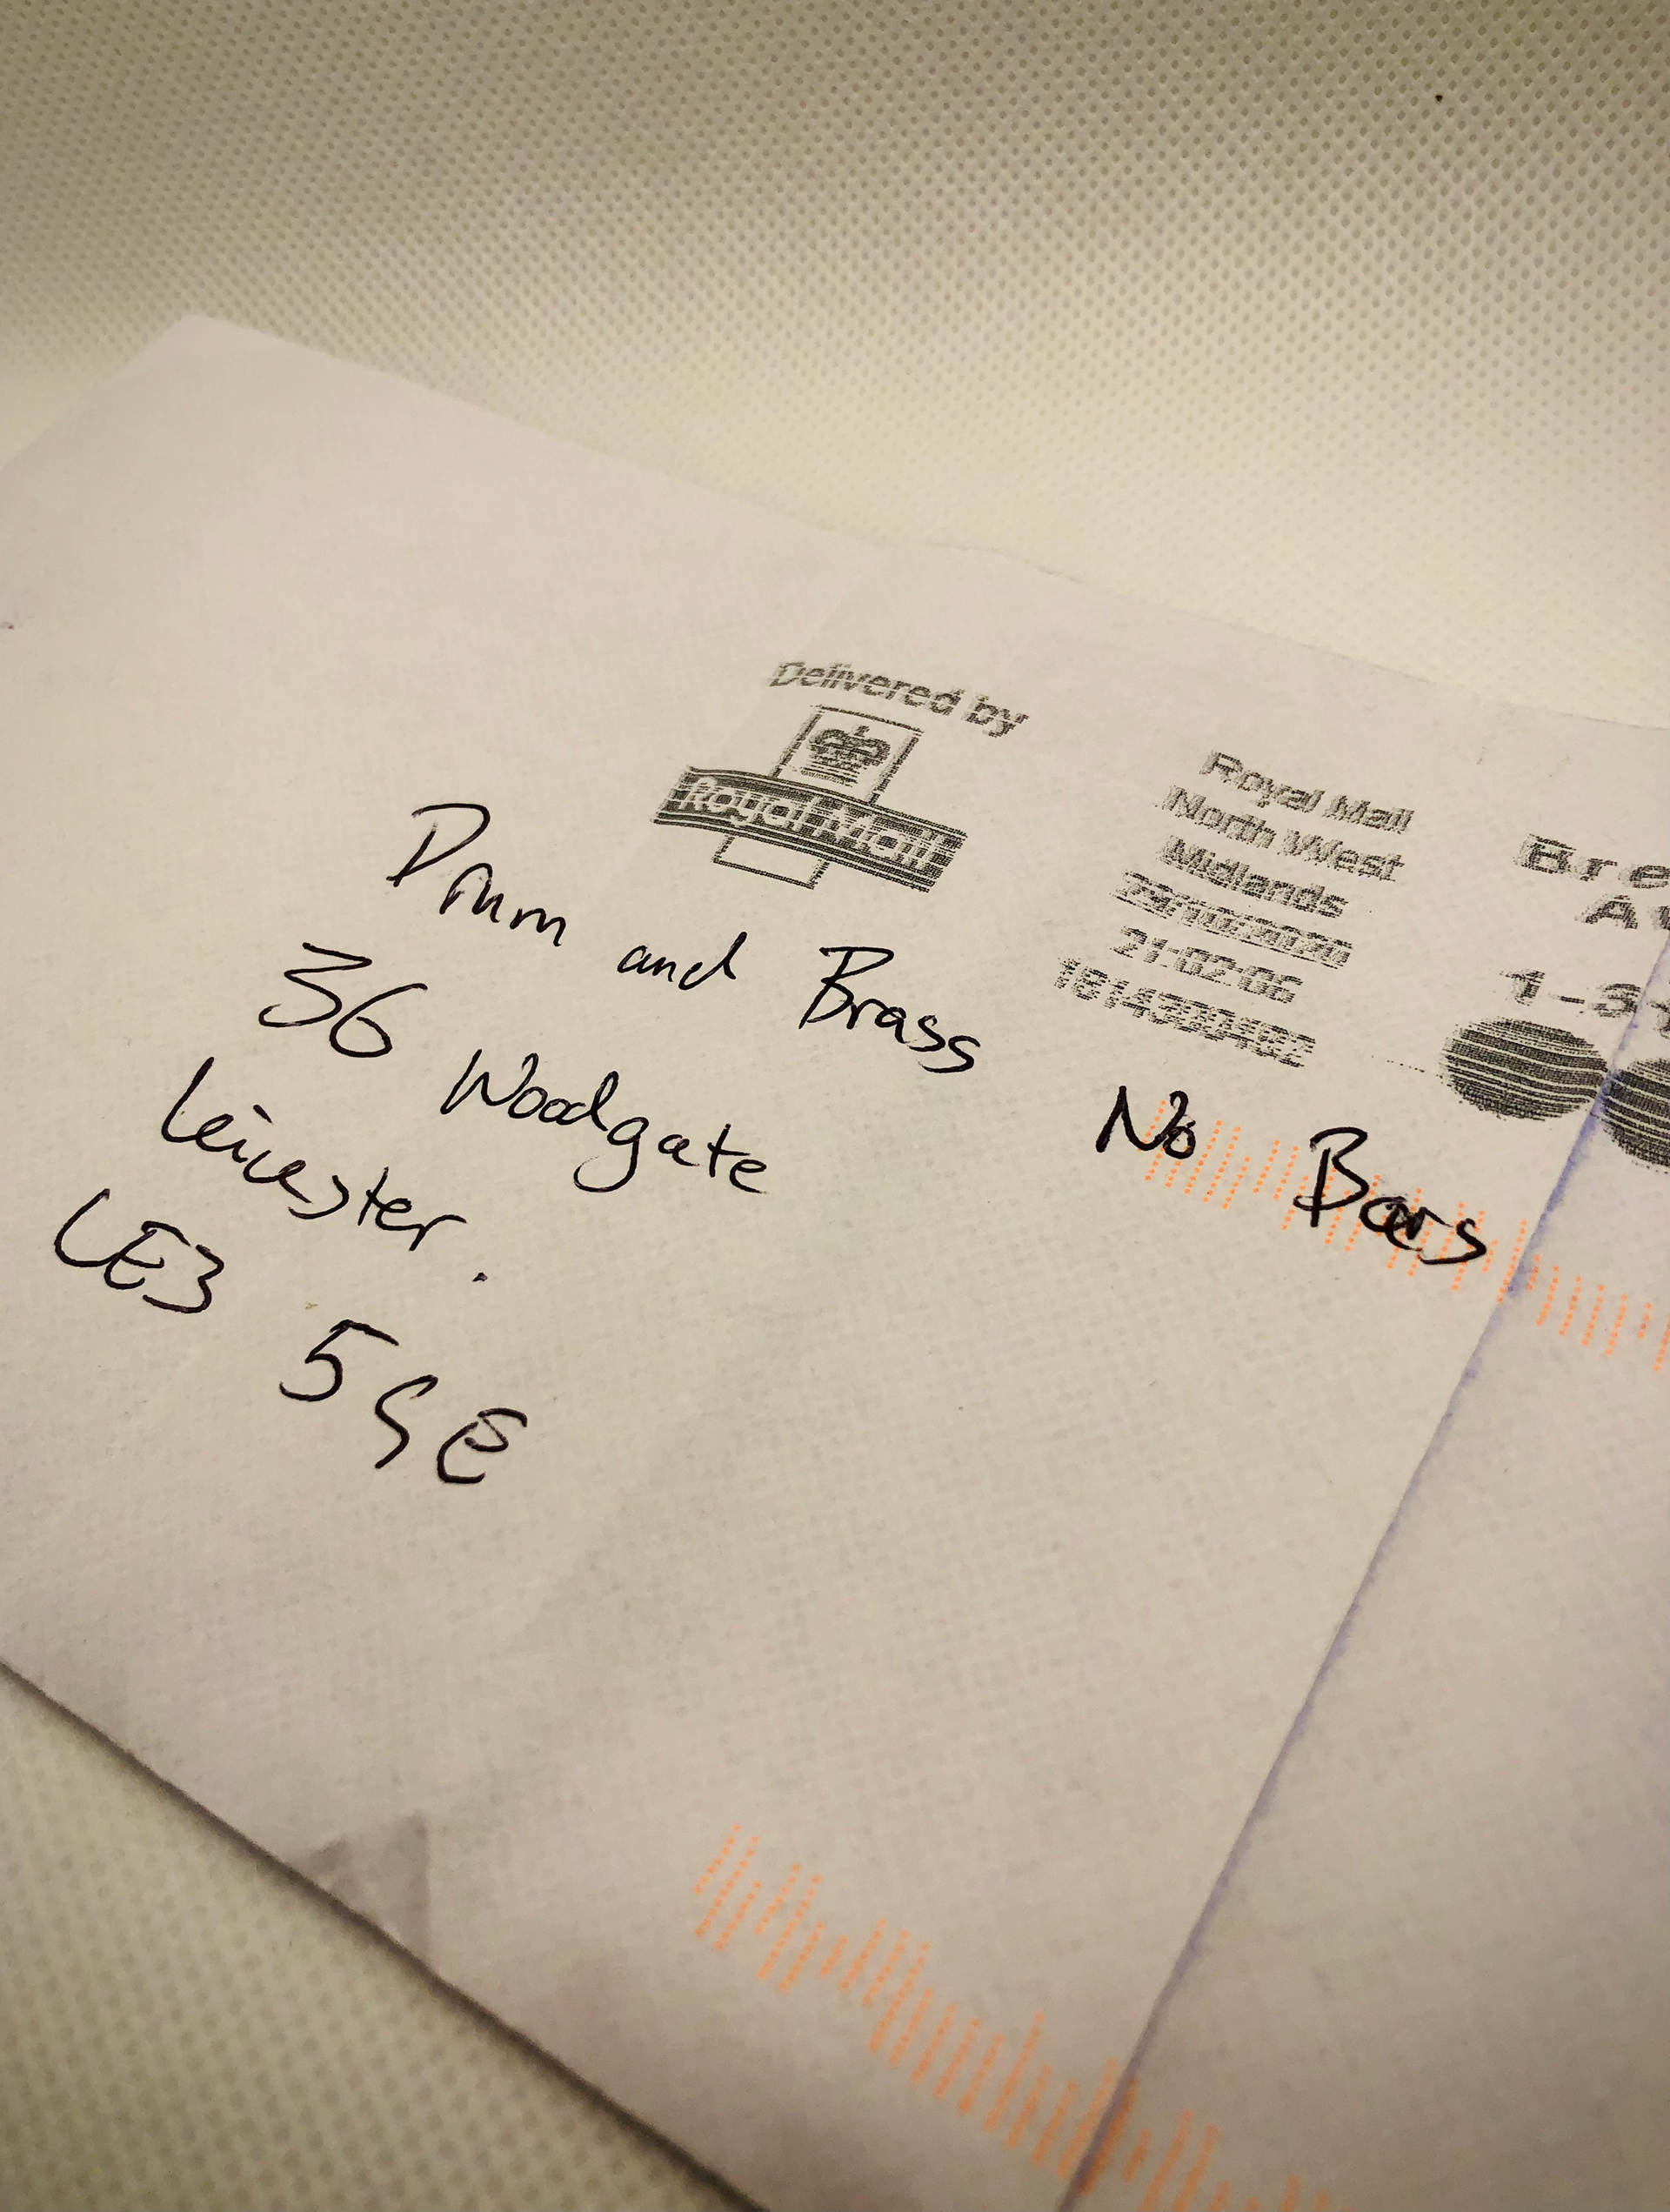 Delivered by
Royal Mail
Royal Mail
North West
Midlands
29/10/2020
21:02:06
1814300482
Bre
1-3
Drum and Brass
36 Woodgate
Leicester.
LE3 5GE
No Bars